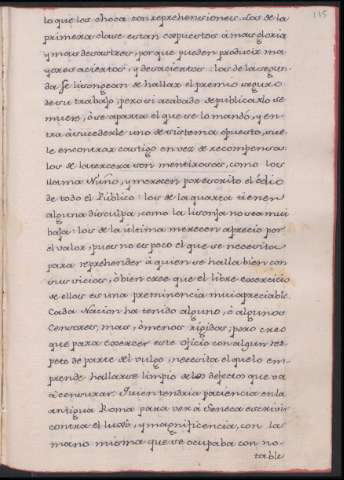 115
lo que les choca con reprehensiones. Los de la
primera clase están expuestos à mas gloria
y mas desastres, porque pueden producir ma
yores aciertos, y desaciertos: los de la segun
da, se lisongean de hallar el premio seguro
de su trabajo, pero si acabado de publicarlo se
muere, ò se aparta el que se lo mandó, y en
tra à sucederle uno de sistema opuesto, sue
le encontrar castigo en vez de recompensa:
los de la tercera son mentirosos, como los
llama Nuño, y merecen por escrito el ódio
de todo el Público: los de la quarta tienen
alguna disculpa, como la lisonja no sea mui
baja: los de la última merecen aprecio por
el valor, pues no es poco el que se necesita
para reprehender à quien se halla bien con
sus vicios, ò bien cree que el libre exercicio
de ellos es una preminencia mui apreciable.
Cada Nacion ha tenido alguno, ò algunos
Censores, mas, ò menos rígidos; pero creo
que para exercer este oficio con algun res
peto de parte del vulgo, necesita el que lo em
prende hallarse limpio de los defectos que va
à censurar. Quien tendria paciencia en la
antigua Roma para ver à Seneca escrivir
contra el luxo, y magnificencia, con la
mano misma que se ocupaba con no-
table